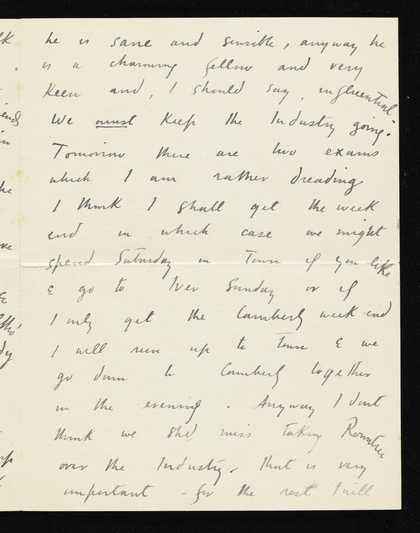 he is sane and sensible, anyway he
is a charming fellow and very
keen and, I should say, influential.
We must keep the Industry going.
Tomorrow there are two exams
which I am rather dreading
I think I shall get the week
end in which case we might
spend Saturday in Town if you like
& go to Iver Sunday or if
I only get the Camberly week-end
I will run up to Town & we
go down to Camberly together
in the evening. Anyway I don't
think we shd miss taking
over the Industry. That is very
important - for the rest I will